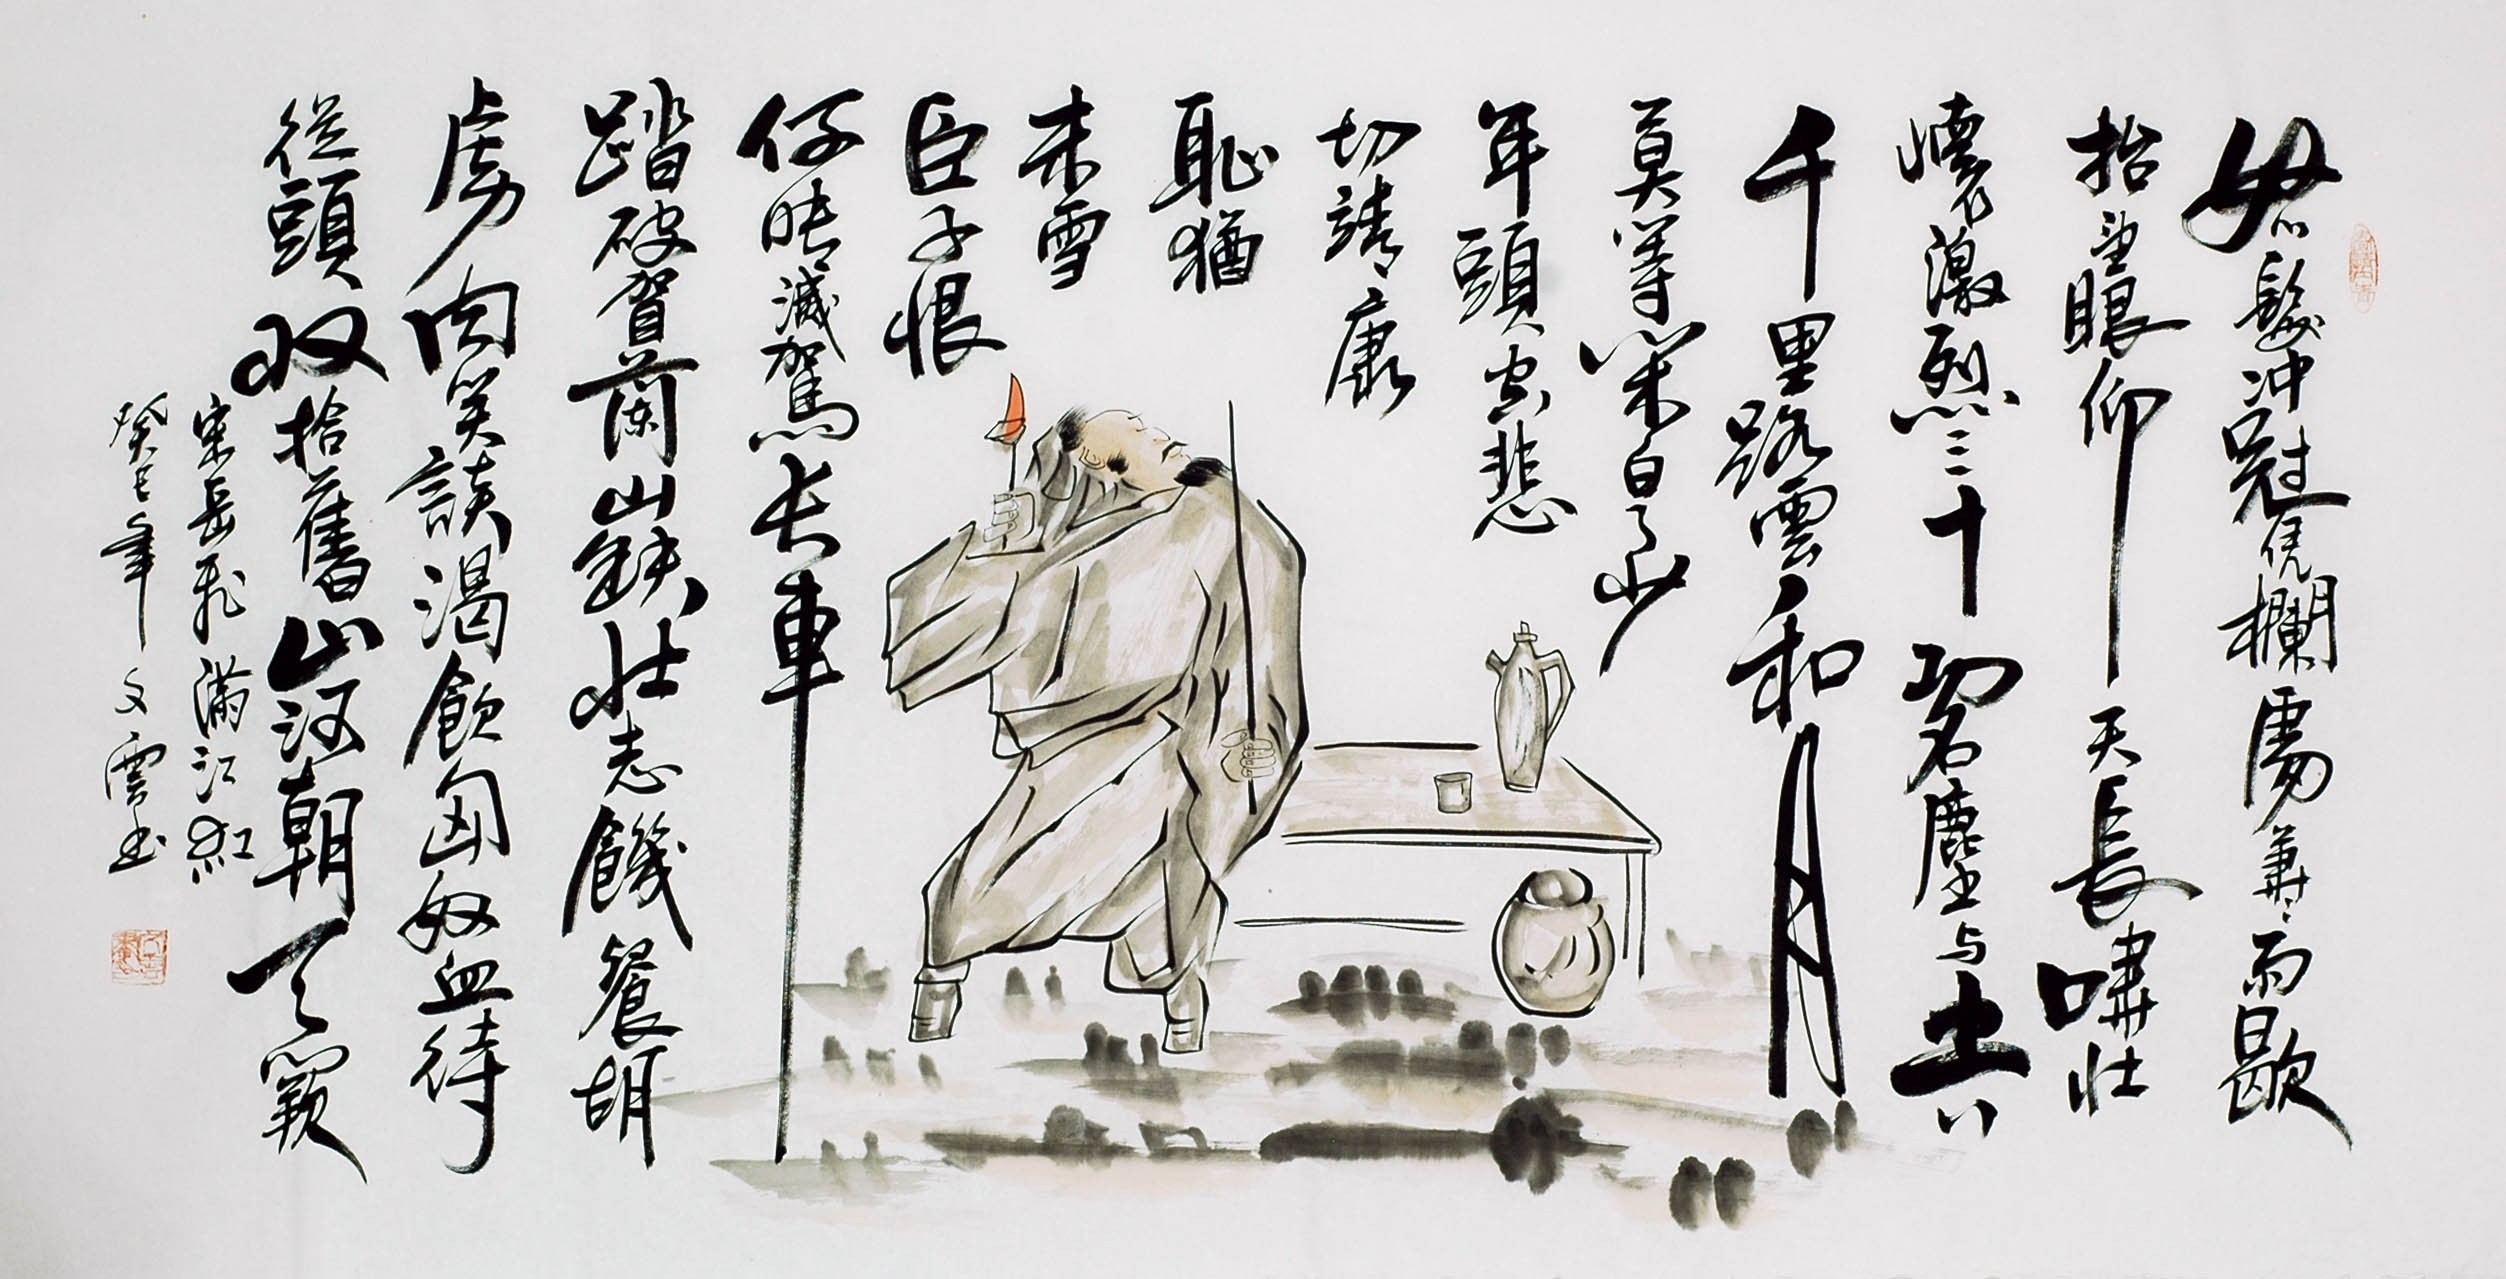 怒髮冲冠凭欄處蕭蕭雨歇
抬望眼仰天長嘯壮
懷激烈三十功名塵与土八
千里路雲和月
莫等閑白了少
年頭空悲
切靖康
恥猶
未雪
臣子恨
何時滅駕长車
踏破賀蘭山缺壮志饑餐胡
虜肉笑談渴飲匈奴血待
從頭收拾舊山河朝天闕
宋岳飛滿江紅
癸巳年文雲书